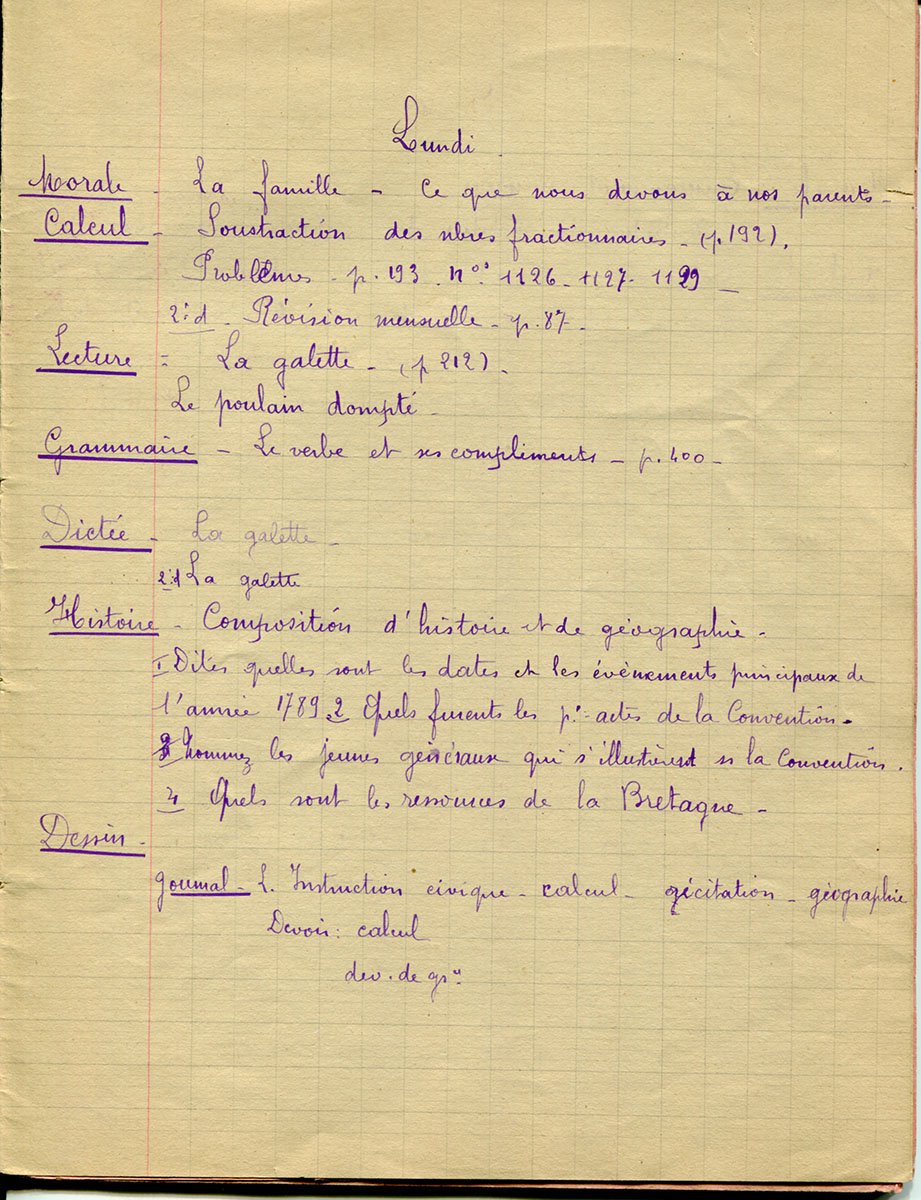 Lundi.
Morale - La famille - Ce que nous devons à nos parents -
Calcul - Soustraction des nbres fractionnaires - (p.192).
Problèmes - p.193 - nos 1126 - 1127 - 1129 -
2:d - Révision mensuelle - p.87 -
Lecture = La galette - (p 212) -
Le poulain dompté -
Grammaire - Le verbe et ses compliments - p.400 -
Dictée - La galette -
2:d La galette
Histoire - Composition d'histoire et de géographie -
1 Dites quelles sont les dates et les évènements principaux de
l'année 1789. 2 Quels furents les p. actes de la Convention -
3 Nommez les jeunes généraux qui s'illustrèrent ss la Convention.
4 Quels sont les ressources de la Bretagne -
Dessin -
Journal - L. Instruction civique - calcul - récitation - géographie
Devoir: calcul
dev. de gre